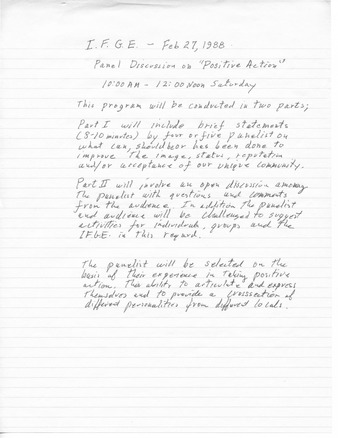 I.F.G.E. - Feb 27, 1988
Panel Discussion on "Positive Action"
10:00 AM - 12:00 Noon Saturday
This program will be conducted in two parts;
Part I will include brief statements
(8-10 minutes) by four or five panelist on
what can, should be or has been done to
improve The image, status, reputation
and/or acceptance of our unique community.
Part II will involve an open discussion among
The panelist with questions and comments
from the audience. In addition The panelist
and audience will be challenged to suggest
activities for individuals, groups and the
IFGE in this regard.
The panelist will be selected on the
basis of their experience in taking positive
action. Their ability to articulate and express
Themselves and to provide a crosssection of
different personalities from different locals.